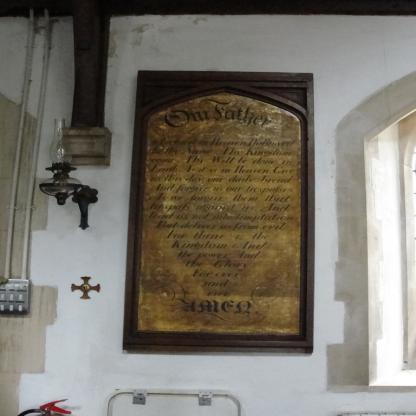 Our Father
in Heaven Hallowed
Name Thy Kingdom
Thy Will be done in
Earth As it is in Heaven Give
us this day our daily Bread
And forgive us our trespasses
As we forgive them that
trespass against us And
lead us not into temptation
But deliver us from evil
For thine is the
Kingdom And
the power And
the Glory
For ever
and
ever
AMEN